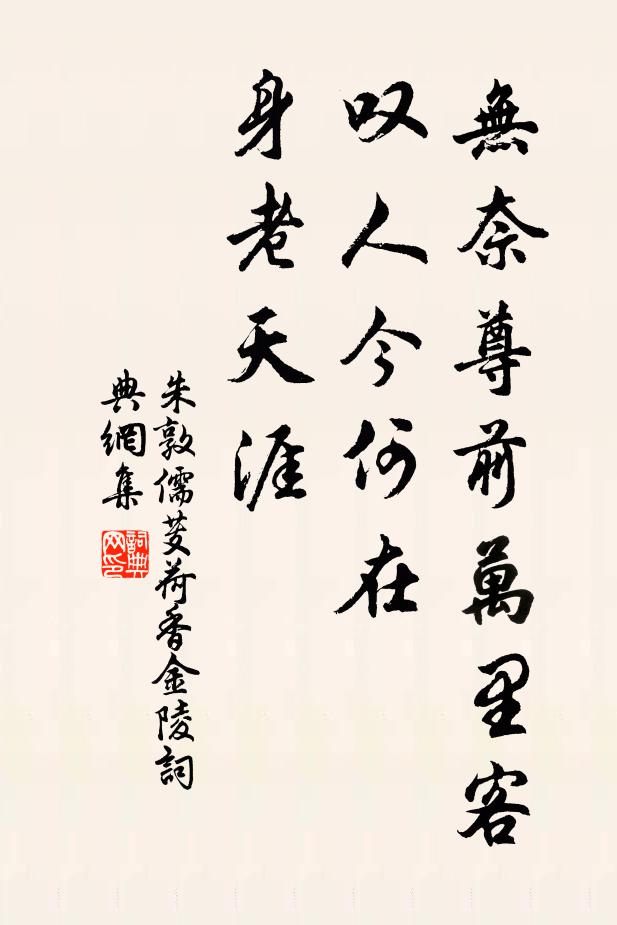 無奈尊前萬里客
叹人今何在
身老天涯
朱敦儒芰荷香金陵詞
典網集
詞典
网印